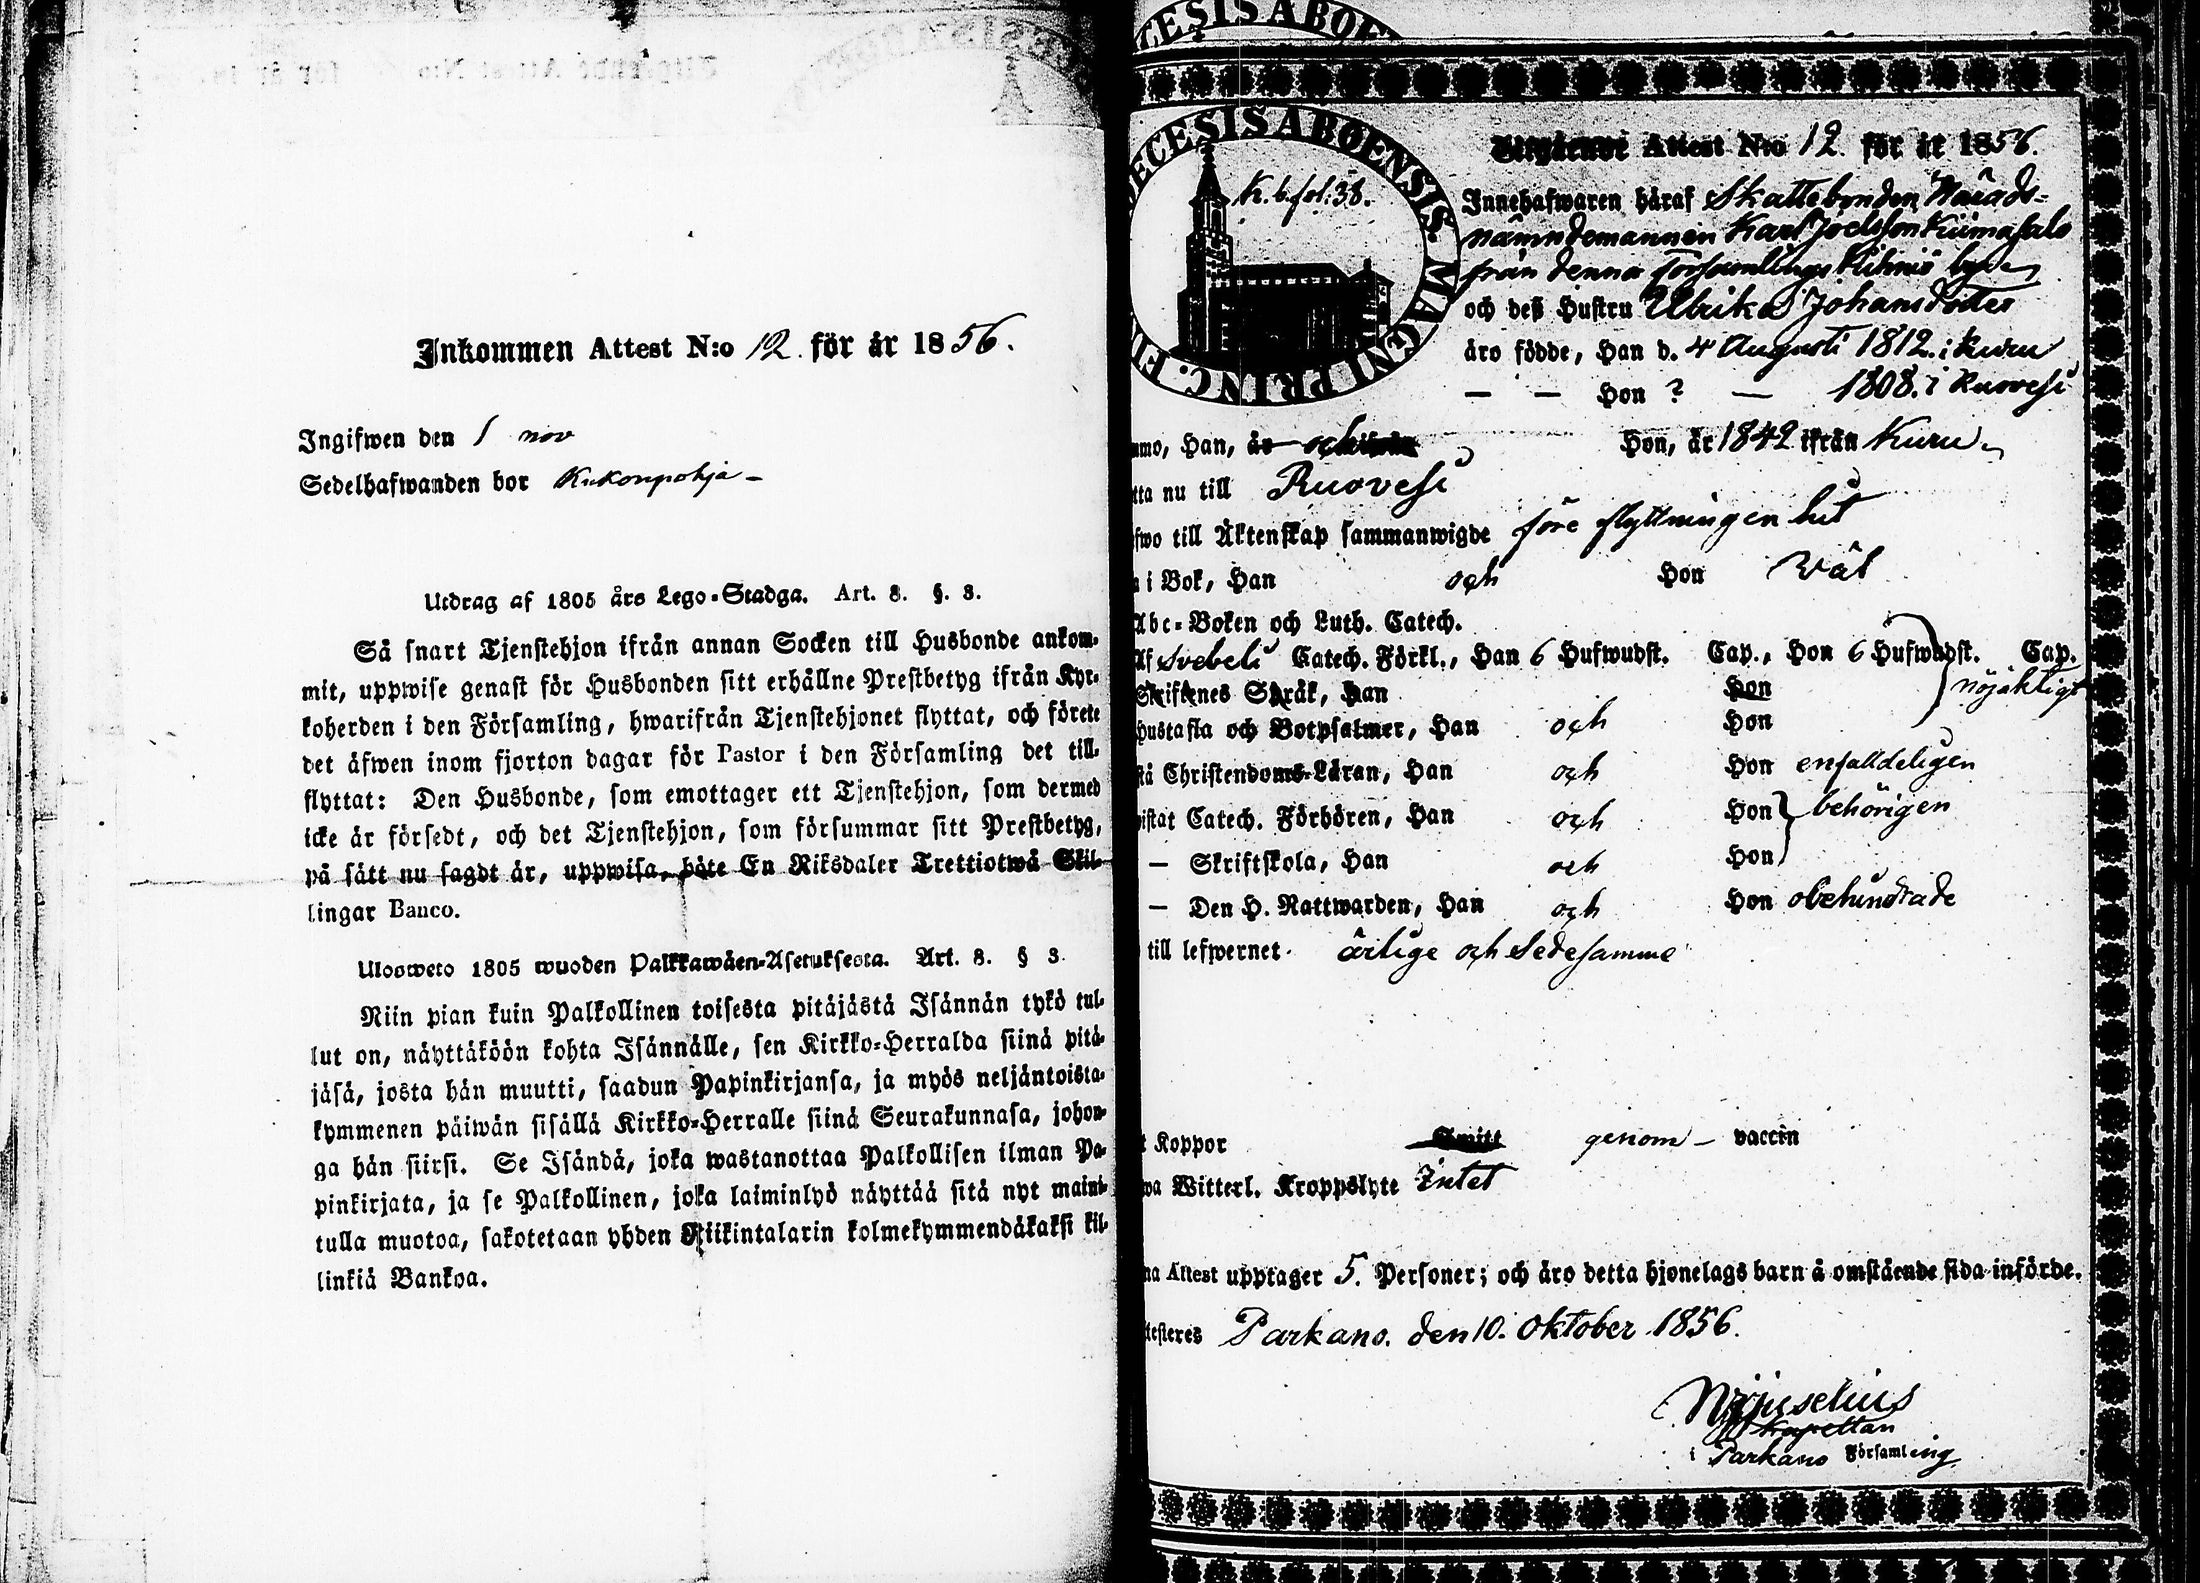 Inkommen Attest N:o 12. för år 1856.
Ingifwen den 1 nov
Sedelhafwanden bor Kukonpohja –
Utdrag af 1805 års Lego-Stadga. Art. 8. §. 3.
Så snart Tjenstehjon ifrån annan Socken till Husbonde ankom-
mit, uppwise genast för Husbonden sitt erhållne Prestbetyg ifrån Kyr-
koherden i den Församling, hwarifrån Tjenstehjonet flyttat, och förete
det äfwen inom fjorton dagar för Pastor i den Församling det till-
flyttat: Den Husbonde, som emottager ett Tjenstehjon, som dermed
icke är försedt, och det Tjenstehjon, som försummar sitt Prestbetyg,
på sätt nu sagdt är, uppwisa, böte En Riksdaler Trettiotwå Skil-
lingar Banco.
Ulosweto 1805 wuoden Palkkawäen-Asetuksesta. Art. 8. § 3.
Niin pian kuin Palkollinen toisesta pitäjästä Isännän tykö tul-
lut on, näyttäköön kohta Isännälle, sen Kirkko-Herralda siinä pitä-
jäsä, josta hän muutti, saadun Papinkirjansa, ja myös neljäntoista-
kymmenen päiwän sisällä Kirkko-Herralle siinä Seurakunnasa, johon-
ga hän siirsi. Se Isändä, joka wastanottaa Palkollisen ilman Pa-
pinkirjata, ja se Palkollinen, joka laiminlyö näyttää sitä nyt maini-
tulla muotoa, sakotetaan yhden Riikintalarin kolmekymmendäkaksi kil-
linkiä Bankoa.
ECESIS ABOENSIS. MAGNI PRINC. F
K. b. fol: 38.
Utgående Attest N:o 12. för år 1856.
Innehafwaren häraf Skattebonden Härads-
nämndemannen Karl Joelsson Kiimasalo
från denna församlings by
och deß Hustru Ulrika Johansdotter
äro födde, Han d. 4 Augusti 1812. i Kuru
— — Hon ? — 1808. i Ruovesi
mmo, Han, år och Hon, år 1842 ifrån Kuru
tta nu till Ruovesi
fwo till Äktenskap sammanwigde före flyttningen hit
i Bok, Han och Hon wäl
Abc-Boken och Luth. Catech.
Af Svebeli Catech. Förkl., Han 6 Hufwudst. Cap., Hon 6 Hufwudst. Cap.
Skriftenes Språk, Han Hon nöjaktigt
Hustafla och Botpsalmer, Han och Hon
stå Christendoms-Läran, Han och Hon enfalldeligen
istat Catech. Förhören, Han och Hon behörigen
— Skriftskola, Han och Hon
— Den H. Nattwarden, Han och Hon obehindrade
till lefwernet ärlige och Sedesamme
t Koppor genom – vaccin
wa Witterl. Kroppslyte Intet
na Attest upptager 5. Personer; och äro detta hjonelags barn å omstående sida införde.
testeres Parkano. den 10. Oktober 1856.
Kapellan
i Parkano Församling